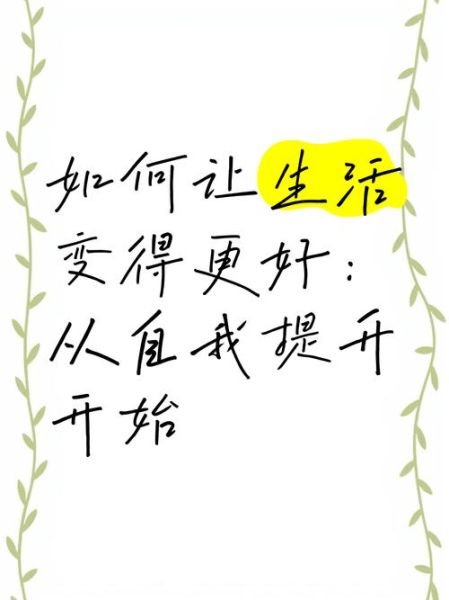 如何让生活
变得更好:
从自我提升
开始